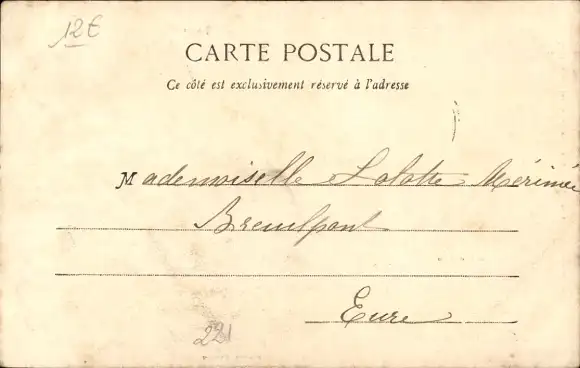 12€
CARTE POSTALE
Ce côté est exclusivement réservé à l'adresse
Mademoiselle Lolotte Mérimée
Breuilpont
Eure
221